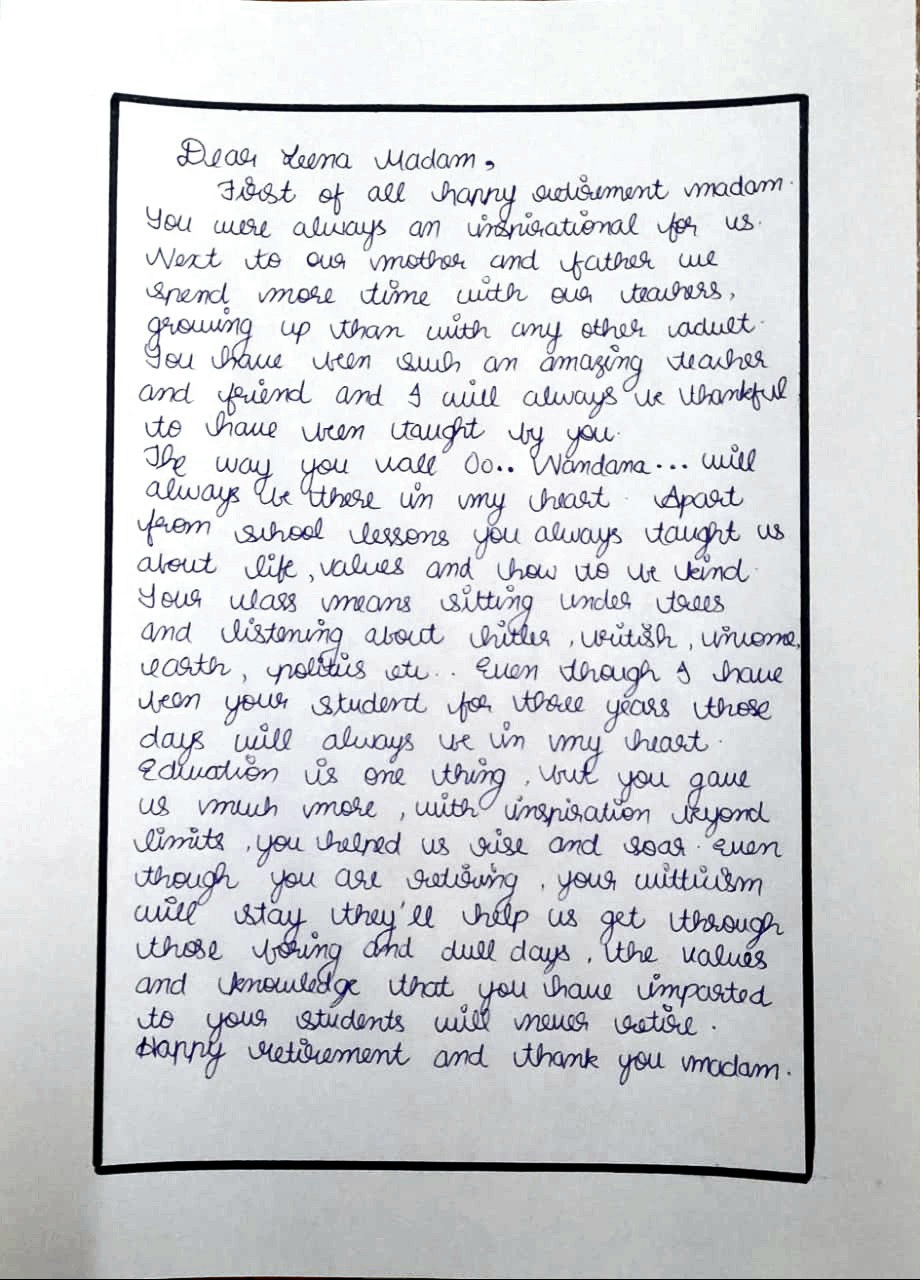 Dear Leena Madam,
First of all happy retirement madam.
You were always an inspirational for us.
Next to our mother and father we
spend more time with our teachers,
growing up than with any other adult.
You have been such an amazing teacher
and friend and I will always be thankful
to have been taught by you.
The way you call Oo.. Wandana... will
always be there in my heart. Apart
from school lessons you always taught us
about life, values and how to be kind.
Your class means sitting under trees
and listening about hitler, british, income,
earth, politics etc.. Even though I have
been your student for three years those
days will always be in my heart.
Education is one thing, but you gave
us much more, with inspiration beyond
limits, you helped us rise and soar. Even
though you are retiring, your witticism
will stay they'll help us get through
those boring and dull days, the values
and knowledge that you have imparted
to your students will never retire.
Happy retirement and thank you madam.